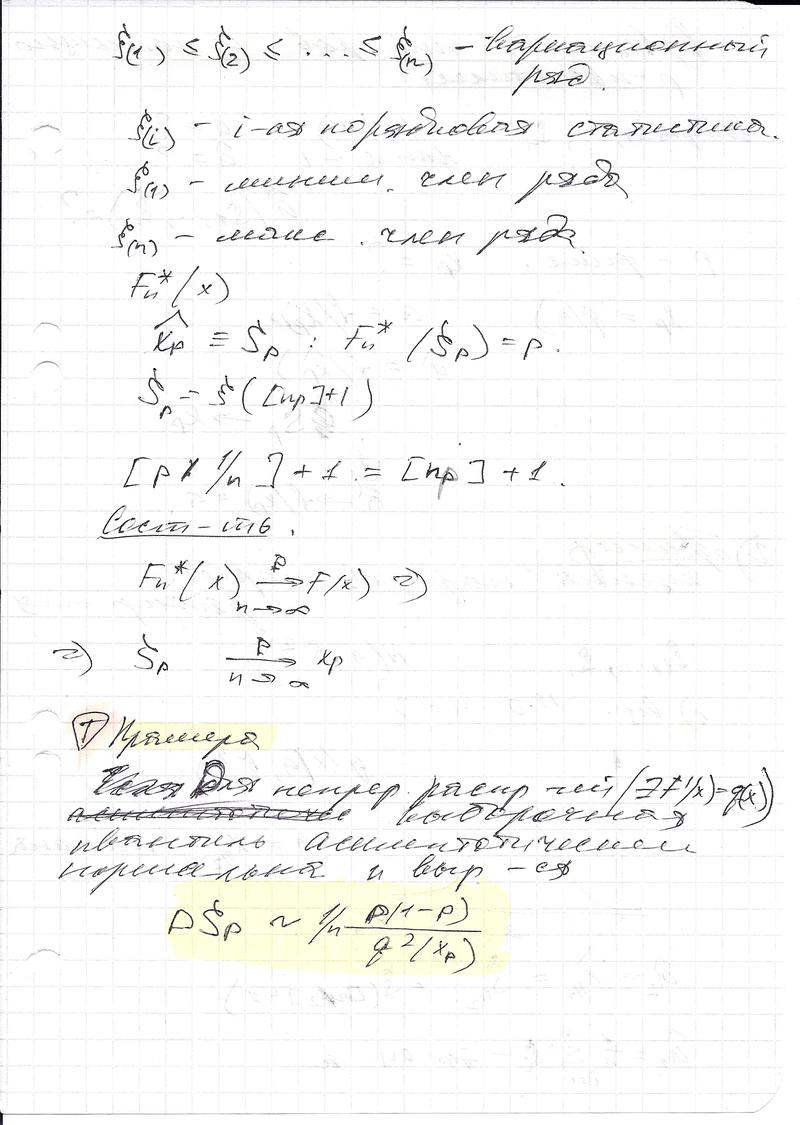 ξ(1) ≤ ξ(2) ≤ ... ≤ ξ(n) – вариационный
ряд.
ξ(i) – i-ая порядковая статистика.
ξ(1) – миним. член ряда
ξ(n) – макс. член ряда.
Fn*(x)
x̂p ≡ ξp : Fn*(ξp) = p.
ξp = ξ([np]+1)
[p / 1/n] + 1 = [np] + 1.
Сост-ть.
Fn*(x) P→ n→∞ F(x) ⇒
⇒ ξp P→ n→∞ xp
Т Крамера
Для непрер. распр-ний (∃F'(x)=q(x))
выборочная
квантиль асимптотически
нормальна и выр-ся
Dξp ~ 1/n p(1-p) / q²(xp)